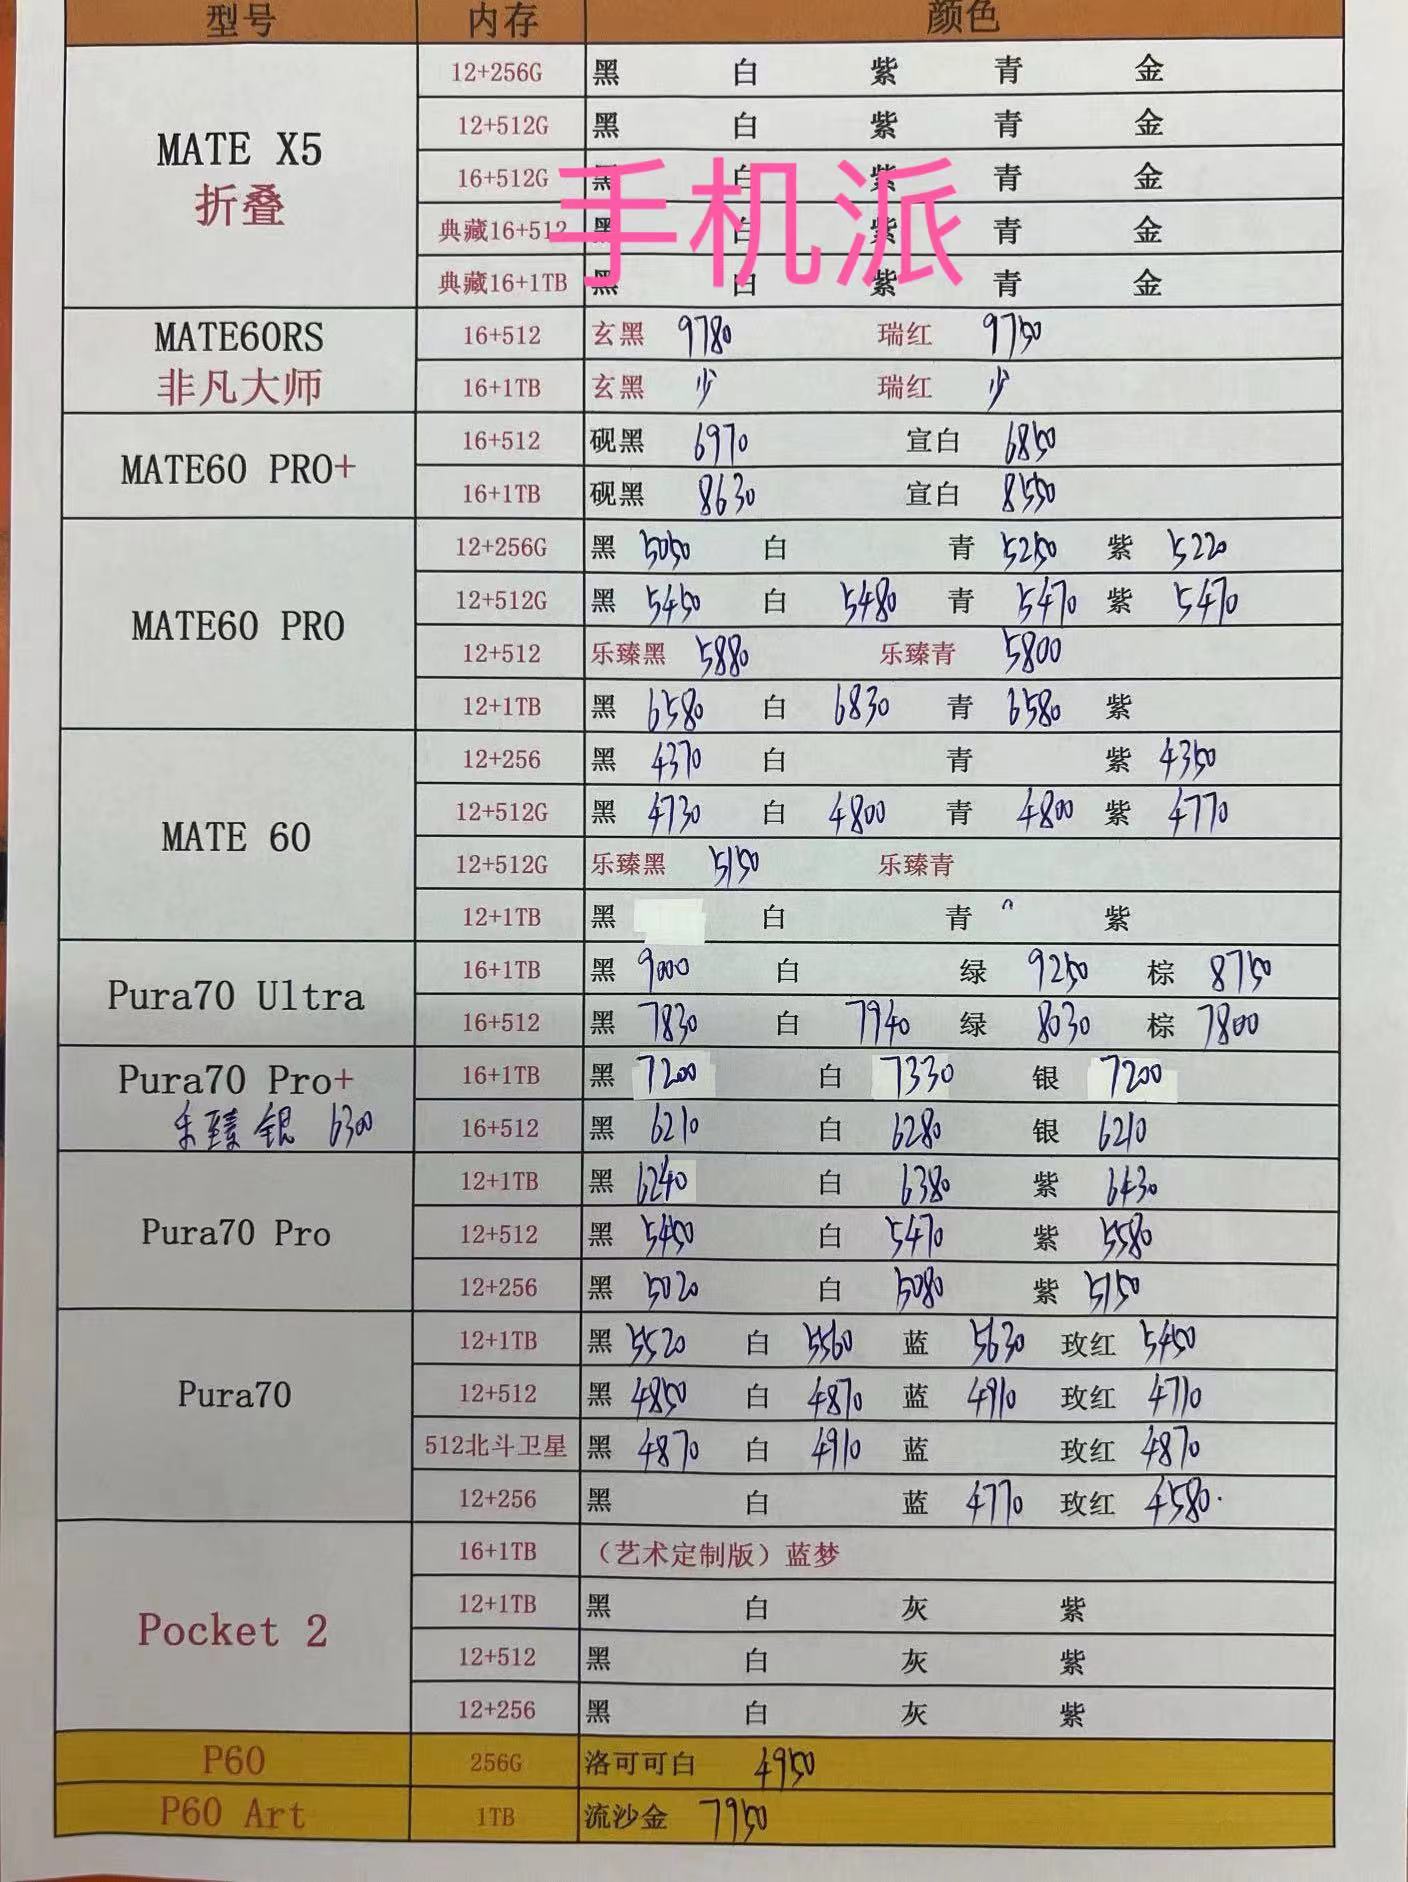 型号 内存 颜色
MATE X5 折叠
12+256G 黑 白 紫 青 金
12+512G 黑 白 紫 青 金
16+512G 黑 白 紫 青 金
手机派
典藏16+512 黑 白 紫 青 金
典藏16+1TB 黑 白 紫 青 金
MATE60RS 非凡大师
16+512 玄黑 9780 瑞红 9750
16+1TB 玄黑 少 瑞红 少
MATE60 PRO+
16+512 砚黑 6970 宣白 6850
16+1TB 砚黑 8630 宣白 8550
MATE60 PRO
12+256G 黑 5050 白 青 5250 紫 5220
12+512G 黑 5450 白 5480 青 5470 紫 5470
12+512 乐臻黑 5880 乐臻青 5800
12+1TB 黑 6580 白 6830 青 6580 紫
MATE 60
12+256 黑 4370 白 青 紫 4350
12+512G 黑 4730 白 4800 青 4800 紫 4770
12+512G 乐臻黑 5150 乐臻青
12+1TB 黑 白 青 紫
Pura70 Ultra
16+1TB 黑 9000 白 绿 9250 棕 8750
16+512 黑 7830 白 7940 绿 8030 棕 7800
Pura70 Pro+
乐臻银 6300
16+1TB 黑 7200 白 7330 银 7200
16+512 黑 6210 白 6280 银 6210
Pura70 Pro
12+1TB 黑 6240 白 6380 紫 6430
12+512 黑 5450 白 5470 紫 5580
12+256 黑 5020 白 5080 紫 5150
Pura70
12+1TB 黑 5520 白 5560 蓝 5630 玫红 5450
12+512 黑 4850 白 4870 蓝 4910 玫红 4710
512北斗卫星 黑 4870 白 4910 蓝 玫红 4870
12+256 黑 白 蓝 4770 玫红 4580.
Pocket 2
16+1TB （艺术定制版）蓝梦
12+1TB 黑 白 灰 紫
12+512 黑 白 灰 紫
12+256 黑 白 灰 紫
P60 256G 洛可可白 4950
P60 Art 1TB 流沙金 7950